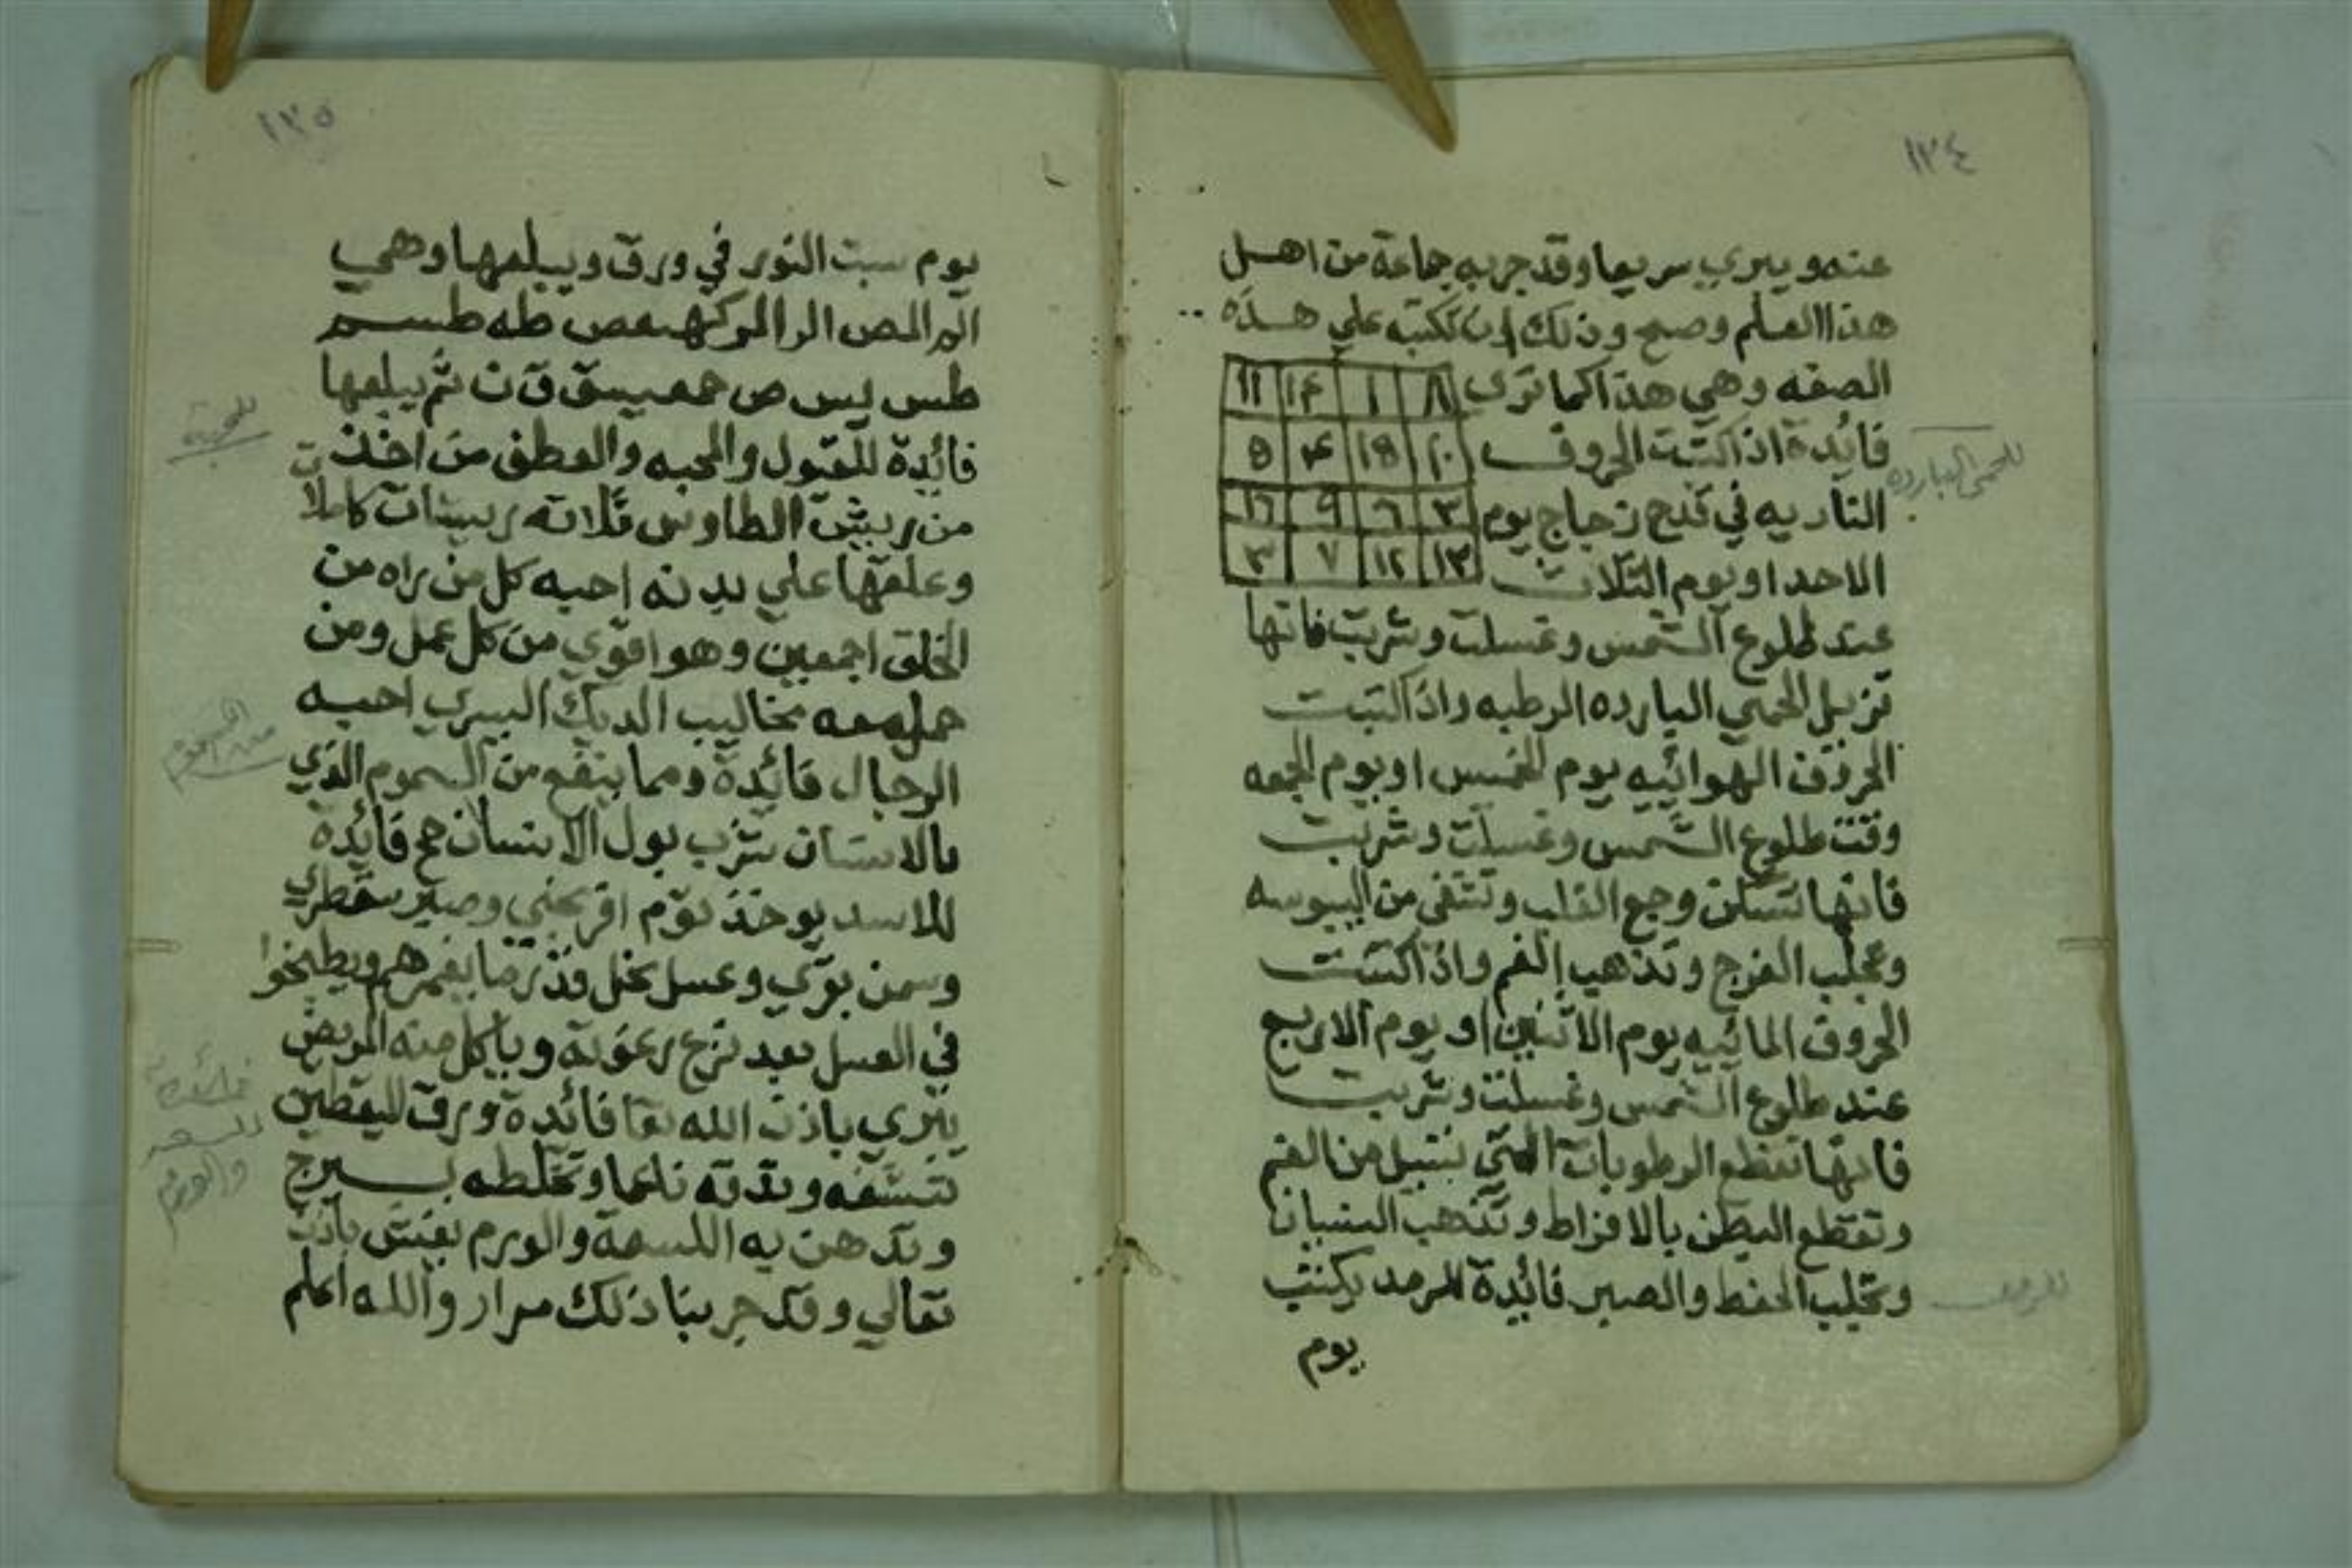 ١٣٤
عنه ويبري سريعا وقد جربه جماعة من اهل
هذا العلم وصح وذلك ان تكتبه علي هذه
الصفه وهي هذا كما تري
٨ ١ ١٤ ١١
فائدة اذا كتبت الحروف
النار يه في قدح زجاج يوم
٣ ٦ ٩ ١٦
الاحد او يوم الثلاث
١٣ ١٢ ٧ ٣
للحمى البارده
عند طلوع الشمس وغسلت وشربت فانها
تزيل الحمي البارده الرطبه واذا كتبت
الحروف الهوائيه يوم الخميس او يوم الجمعه
وقت طلوع الشمس وغسلت وشربت
فانها تسكن وجع القلب وتنقي من اليبوسه
وتجلب الفرح وتذهب الغم واذا كتبت
الحروف المائيه يوم الاثنين او يوم الاربع
عند طلوع الشمس وغسلت وشربت
فانها تقطع الرطوبات التي تسيل من الفم
وتقطع البطن بالافراط وتذهب النسيان
وتجلب الحفظ والصبر فائدة للرمد يكتب
يوم
١٣٥
يوم سبت النور في ورق ويبلعها وهي
الم المص الر المر كهيعص طه طسم
طس يس ص حمعسق ق ن ثم يبلعها
فائدة للقبول والمحبه والعطف من اخذت
من ريش الطاوس ثلاثه ريشات كاملا
وعلقها علي بدنه احبه كل من راه من
الخلق اجمعين وهو اقوي من كل عمل ومن
حمل معه مخاليب الديك اليسري احبه
الرجال فائدة ومما ينفع من السموم الذي
بالانسان شرب بول الانسان فائدة
للاسد يوخذ ثوم وصبر سقطري
وسمن بقري وعسل نحل يغمرهم ويطبخوا
في العسل بعد نزع رغوته وياكل منه المريض
يبري باذن الله تعا فائدة ورق اليقطين
تنشفه وتدقه ناعما وتخلطه بسيرج
وتدهن به اللسعة والورم يفش باذن
تعالي وقد جربنا ذلك مرار والله اعلم
للمحبة
من السموم
فائدة
للسعه
والورم